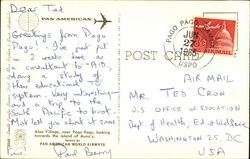 Dear Ted
PAN AMERICAN
Greetings from Pago
Pago! I've just put
in 2 weeks here as
a consultant to A.I.D.
day study of
their educational
system. Very interesting
and a trip to the
South Pacific is not
let you about it some
Paul Berry
Aloa Village, near Pago Pago, looking
towards the island of Aunu'u.
PAN AMERICAN WORLD AIRWAYS
POST CARD
PAGO PAGO
JUN
27
USPO
AIR MAIL
AIR MAIL
MR. TED CRON
U.S. OFFICE OF EDUCATION
Dept of Health, Ed. & Welfare
WASHINGTON 25, DC
USA